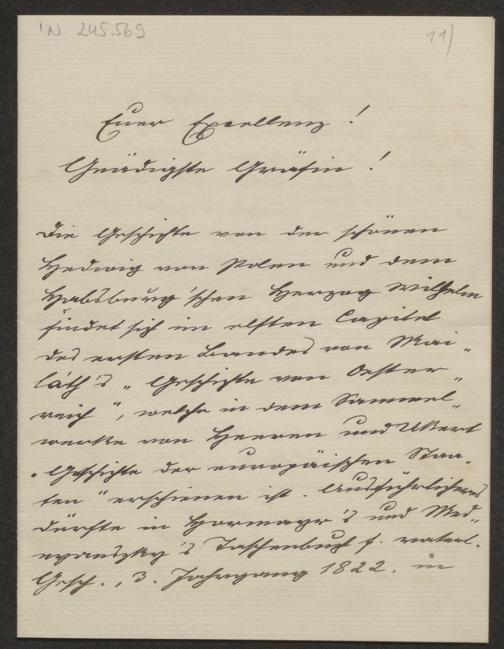 IN. 245.569
11)
Euer Excellenz!
Gnädigste Gräfin!
Die Geschichte von der schönen
Hedwig von Polen und dem
Habsburg'schen Herzog Wilhelm
findet sich im elften Capitel
des ersten Bandes von Mai„
láth's „Geschichte von Oester„
reich", welche in dem Sammel„
werke von Heeren und Ukert
„Geschichte der europäischen Staa„
ten" erschienen ist. Ausführlicheres
dürfte in Hormayr's und Med„
nyanszky's Taschenbuch f. vaterl.
Gesch., 3. Jahrgang 1822. in